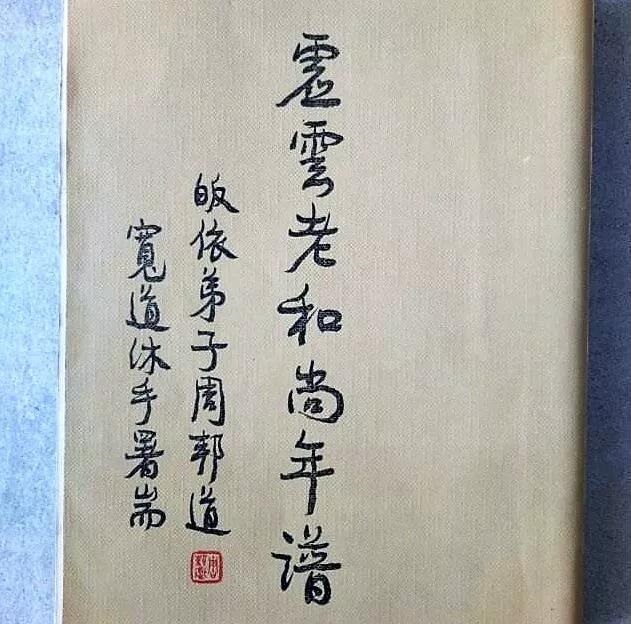 虛雲老和尚年譜
皈依弟子周邦道
寬道沐手署耑